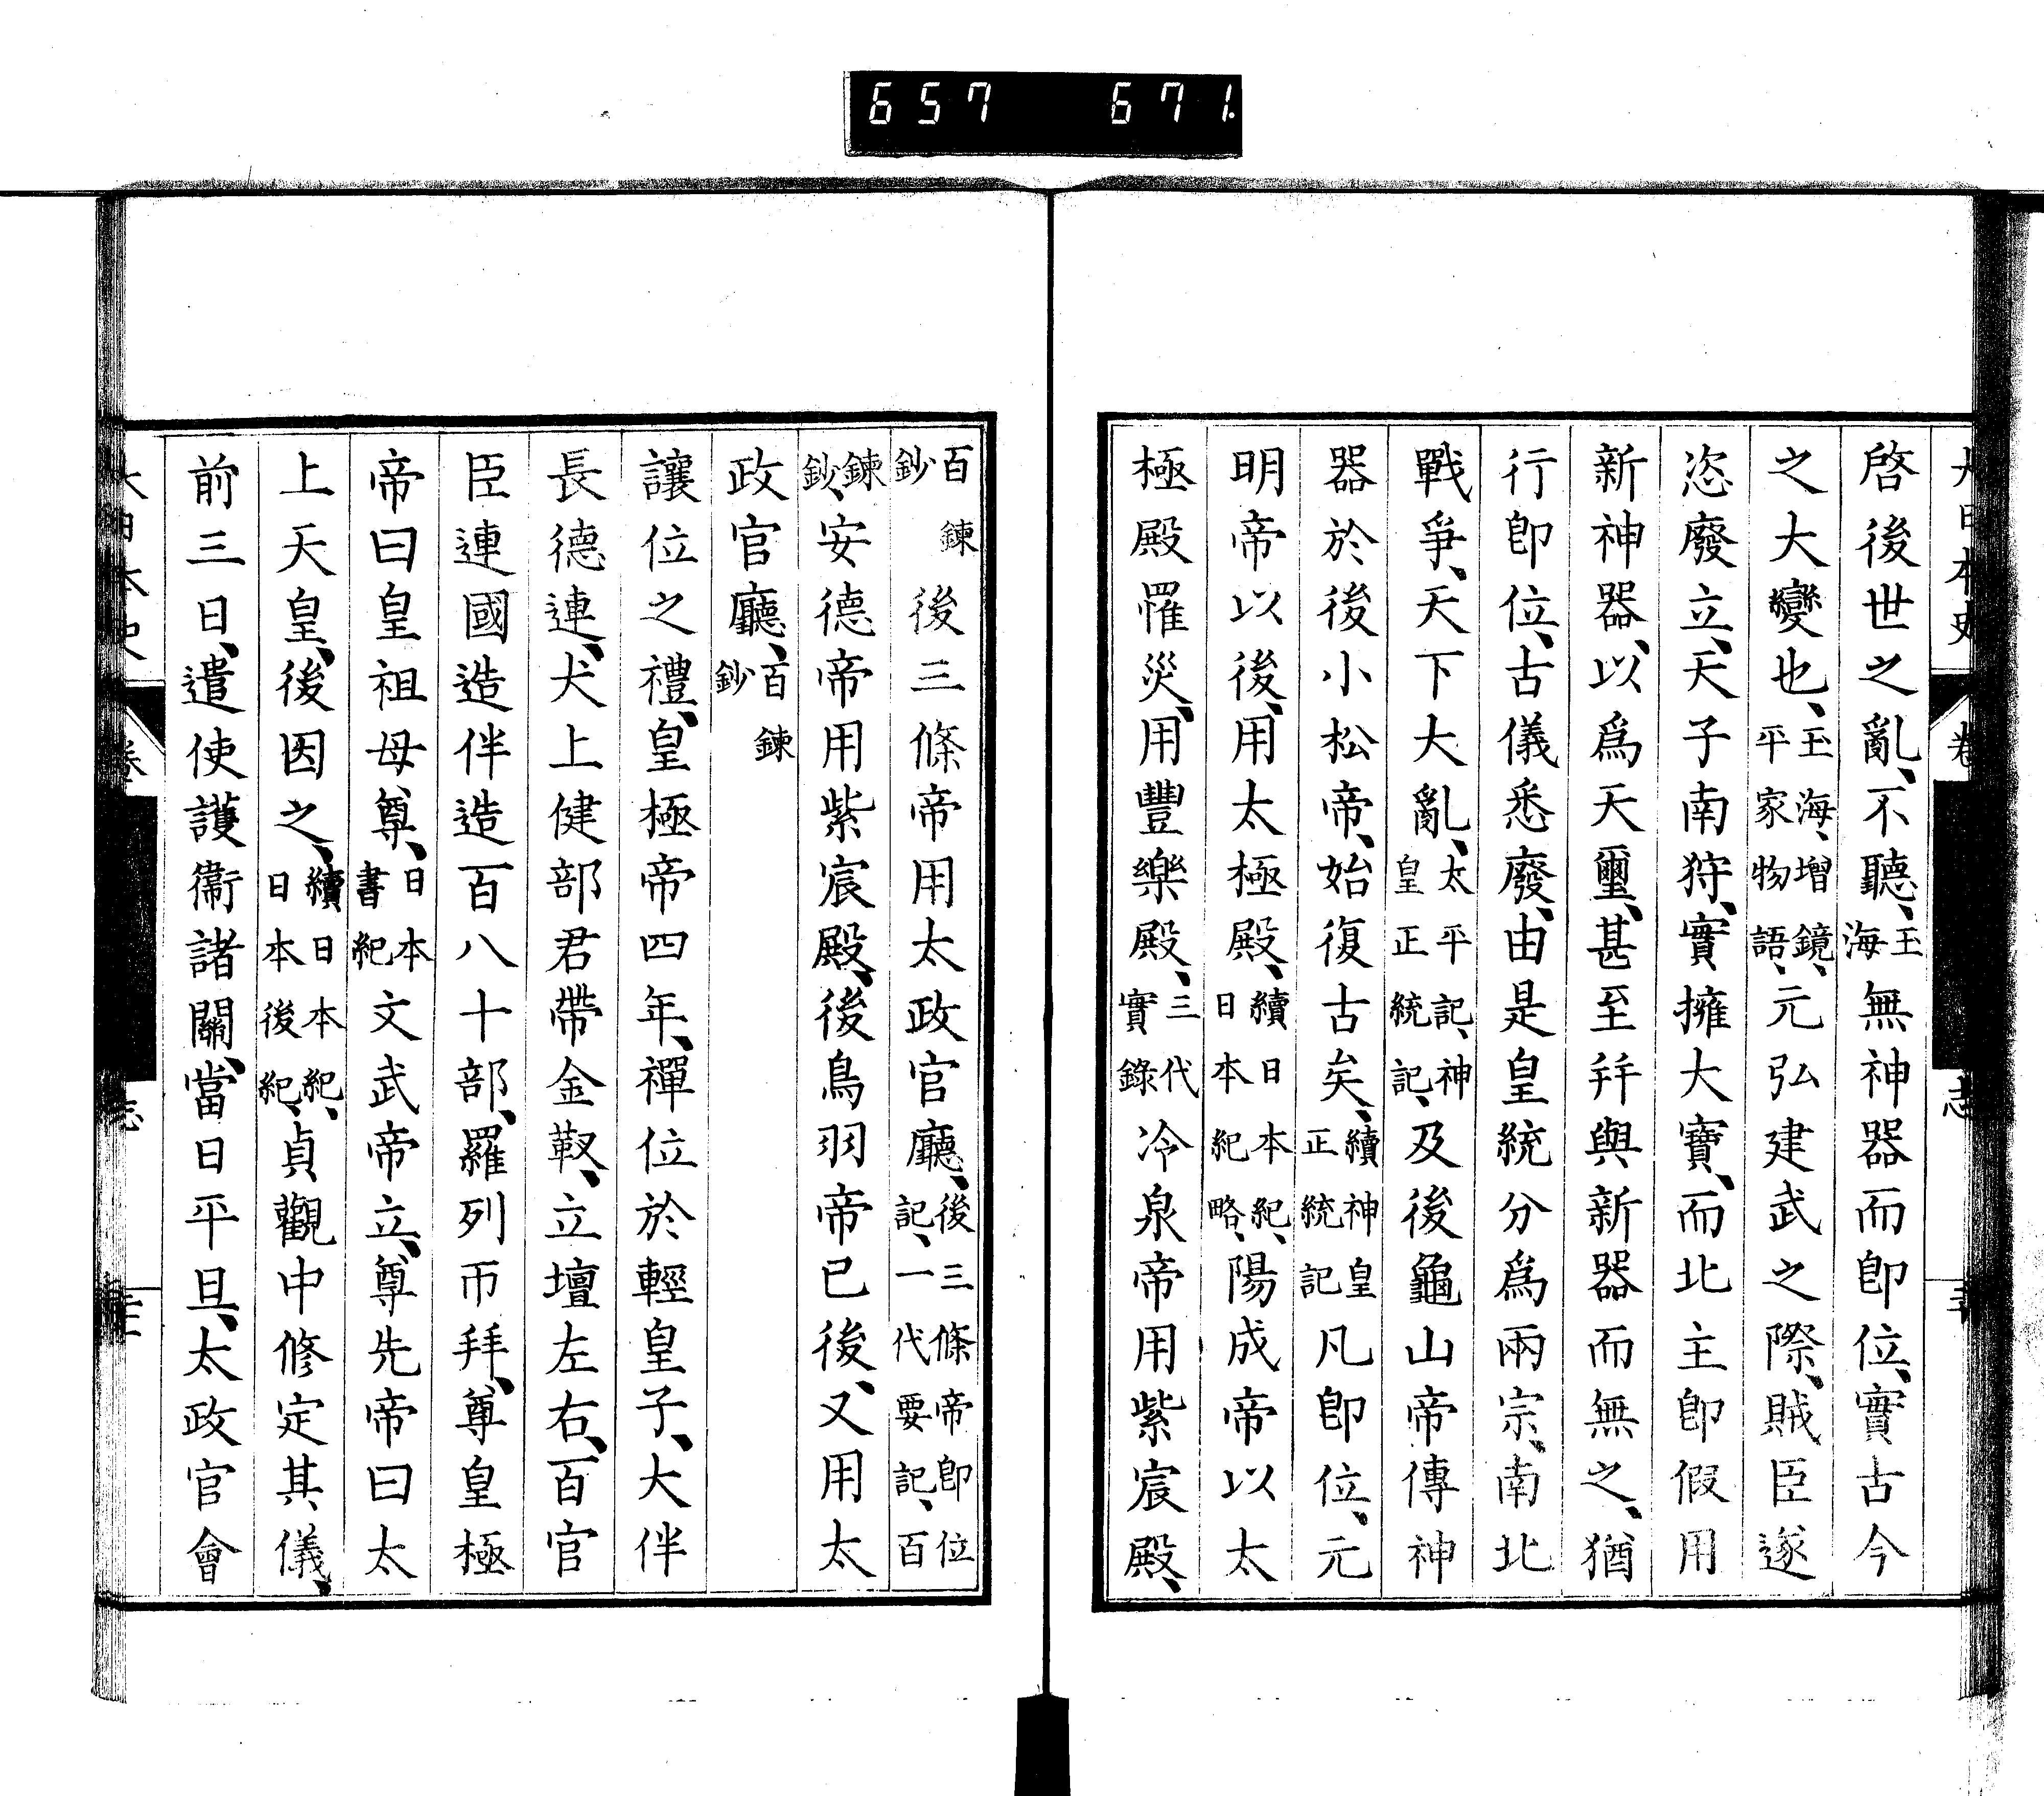 657 671.
大日本史 卷 志
啓後世之亂、不聽、玉海無神器而卽位、實古今
之大變也、玉海、增鏡、平家物語、元弘建武之際、賊臣遂
恣廢立、天子南狩、實擁大寶、而北主卽假用
新神器、以爲天璽、甚至幷與新器而無之、猶
行卽位、古儀悉廢、由是皇統分爲兩宗、南北
戰爭、天下大亂、太平記、神皇正統記、及後龜山帝傳神
器於後小松帝、始復古矣、續神皇正統記凡卽位、元
明帝以後、用太極殿、續日本紀、日本紀略、陽成帝以太
極殿罹災、用豐樂殿、三代實錄冷泉帝用紫宸殿、
百鍊鈔後三條帝用太政官廳、後三條帝卽位記、一代要記、百
鍊鈔、安德帝用紫宸殿、後鳥羽帝已後、又用太
政官廳、百鍊鈔
讓位之禮、皇極帝四年、禪位於輕皇子、大伴
長德連、犬上健部君帶金靫、立壇左右、百官
臣連國造伴造百八十部、羅列帀拜、尊皇極
帝曰皇祖母尊、日本書紀文武帝立、尊先帝曰太
上天皇、後因之、續日本紀、日本後紀、貞觀中修定其儀、
前三日、遣使護衞諸關、當日平旦、太政官會
大日本史 卷 志